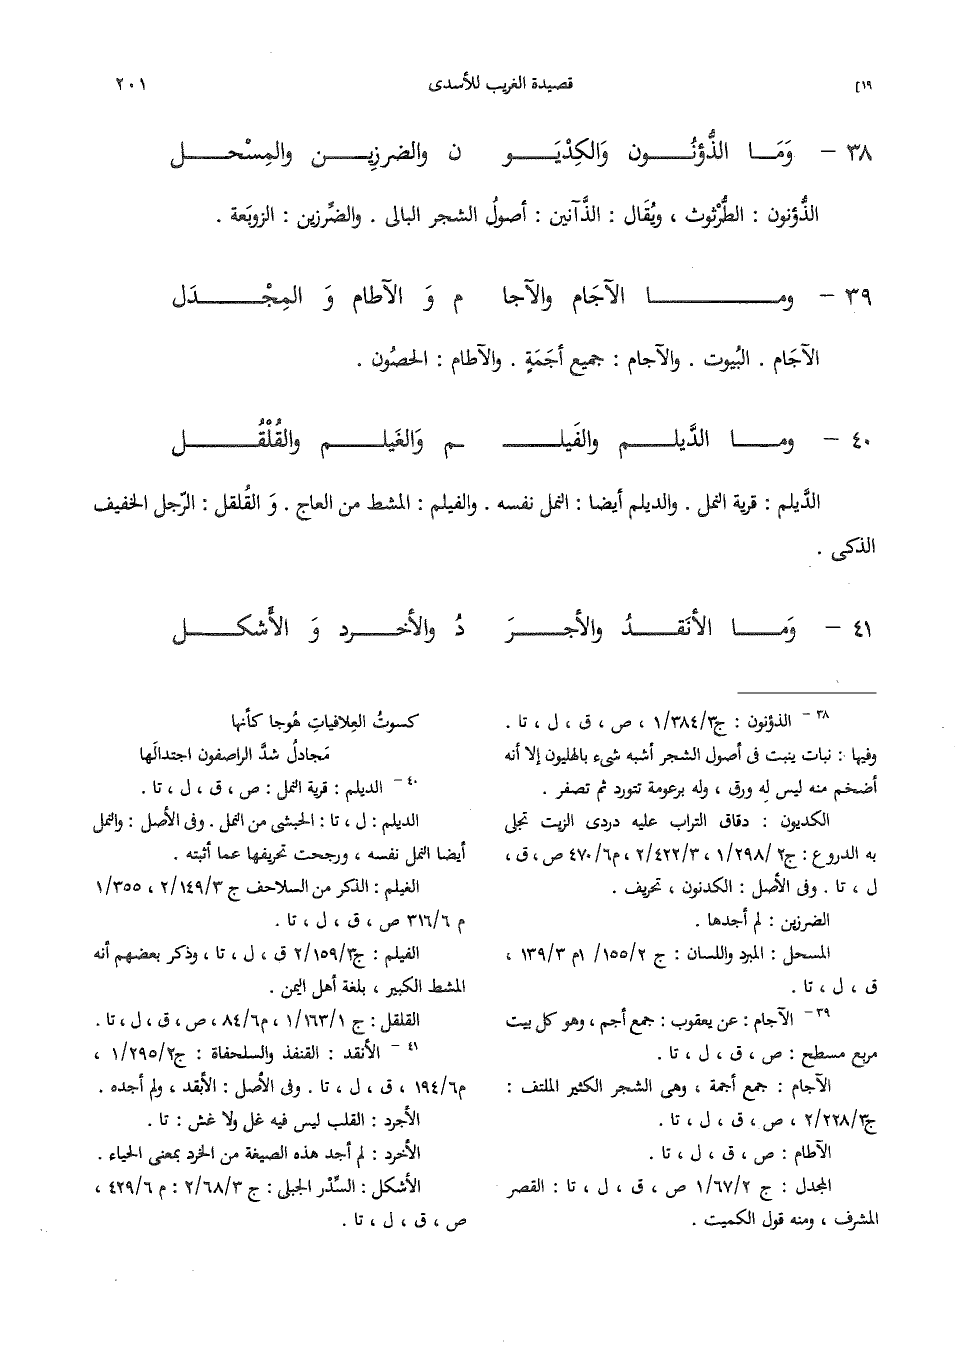 ١٩] قصيدة الغريب للأسدى ٢٠١
٣٨ – وَمَـا الذُّؤنُـون وَالكِدْيَـو ن والضرزِيـن والمِسْحـل
الذُّؤنون : الطُّرْثوث ، ويُقَال : الذَّآنين : أصولُ الشجر البالى . والضِّرزين : الزوبَعة .
٣٩ – ومـا الآجَام والآجا م وَ الآطام وَ المِجْـدَل
الآجَام . البُيوت . والآجام : جميع أجَمَةٍ . والآطام : الحصُون .
٤٠ – ومـا الدَّيلـم والفَيلـ ـم وَالغَيلـم والقُلْقُـل
الدَّيلم : قرية النمل . والديلم أيضا : النمل نفسه . والفيلم : المشط من العاج . وَ القُلقل : الرّجل الخفيف
الذكى .
٤١ – وَمَـا الأنَقـدُ والأجـرَ دُ والأخـرد وَ الأَشكـل
٣٨ – الذؤنون : ج٣/٣٨٤/١ ، ص ، ق ، ل ، تا .
وفيها : نبات ينبت فى أصول الشجر أشبه شىء بالهليون إلا أنه
أضخم منه ليس له ورق ، وله برعومة تتورد ثم تصفر .
الكديون : دقاق التراب عليه دردى الزيت تجلى
به الدروع : ج٢/٢٩٨/١ ، ٤٢٢/٣/٢ ، م٤٧٠/٦ ص ، ق ،
ل ، تا . وفى الأصل : الكدنون ، تحريف .
الضرزين : لم أجدها .
المسحل : المبرد واللسان : ج ١٥٥/٢/ ١م ١٣٩/٣ ،
ق ، ل ، تا .
٣٩ – الآجام : عن يعقوب : جمع أجم ، وهو كل بيت
مربع مسطح : ص ، ق ، ل ، تا .
الآجام : جمع أجمة ، وهى الشجر الكثير الملتف :
ج٢/٢٢٨/٣ ، ص ، ق ، ل ، تا .
الآطام : ص ، ق ، ل ، تا .
المجدل : ج ١/٦٧/٢ ص ، ق ، ل ، تا : القصر
المشرف ، ومنه قول الكميت .
كسوتُ العِلافياتِ هُوجا كأنها
مَجادلُ شدَّ الراصفون اجتدالَها
٤٠ – الديلم : قرية النمل : ص ، ق ، ل ، تا .
الديلم : ل ، تا : الحبشى من النمل . وفى الأصل : والنمل
أيضا النمل نفسه ، ورجحت تحريفها عما أثبته .
الغيلم : الذكر من السلاحف ج ٢/١٤٩/٣ ، ١/٣٥٥
م ٣١٦/٦ ص ، ق ، ل ، تا .
الفيلم : ج٢/١٥٩/٣ ق ، ل ، تا ، وذكر بعضهم أنه
المشط الكبير ، بلغة أهل اليمن .
القلقل : ج ١/١٦٣/١ ، م٨٤/٦ ، ص ، ق ، ل ، تا .
٤١ – الأنقد : القنفذ والسلحفاة : ج١/٢٩٥/٢ ،
م١٩٤/٦ ، ق ، ل ، تا . وفى الأصل : الأبقد ، ولم أجده .
الأجرد : القلب ليس فيه غل ولا غش : تا .
الأخرد : لم أجد هذه الصيغة من الخرد بمعنى الحياء .
الأشكل : السِّدْر الجبلى : ج ٢/٦٨/٣ : م ٤٢٩/٦ ،
ص ، ق ، ل ، تا .